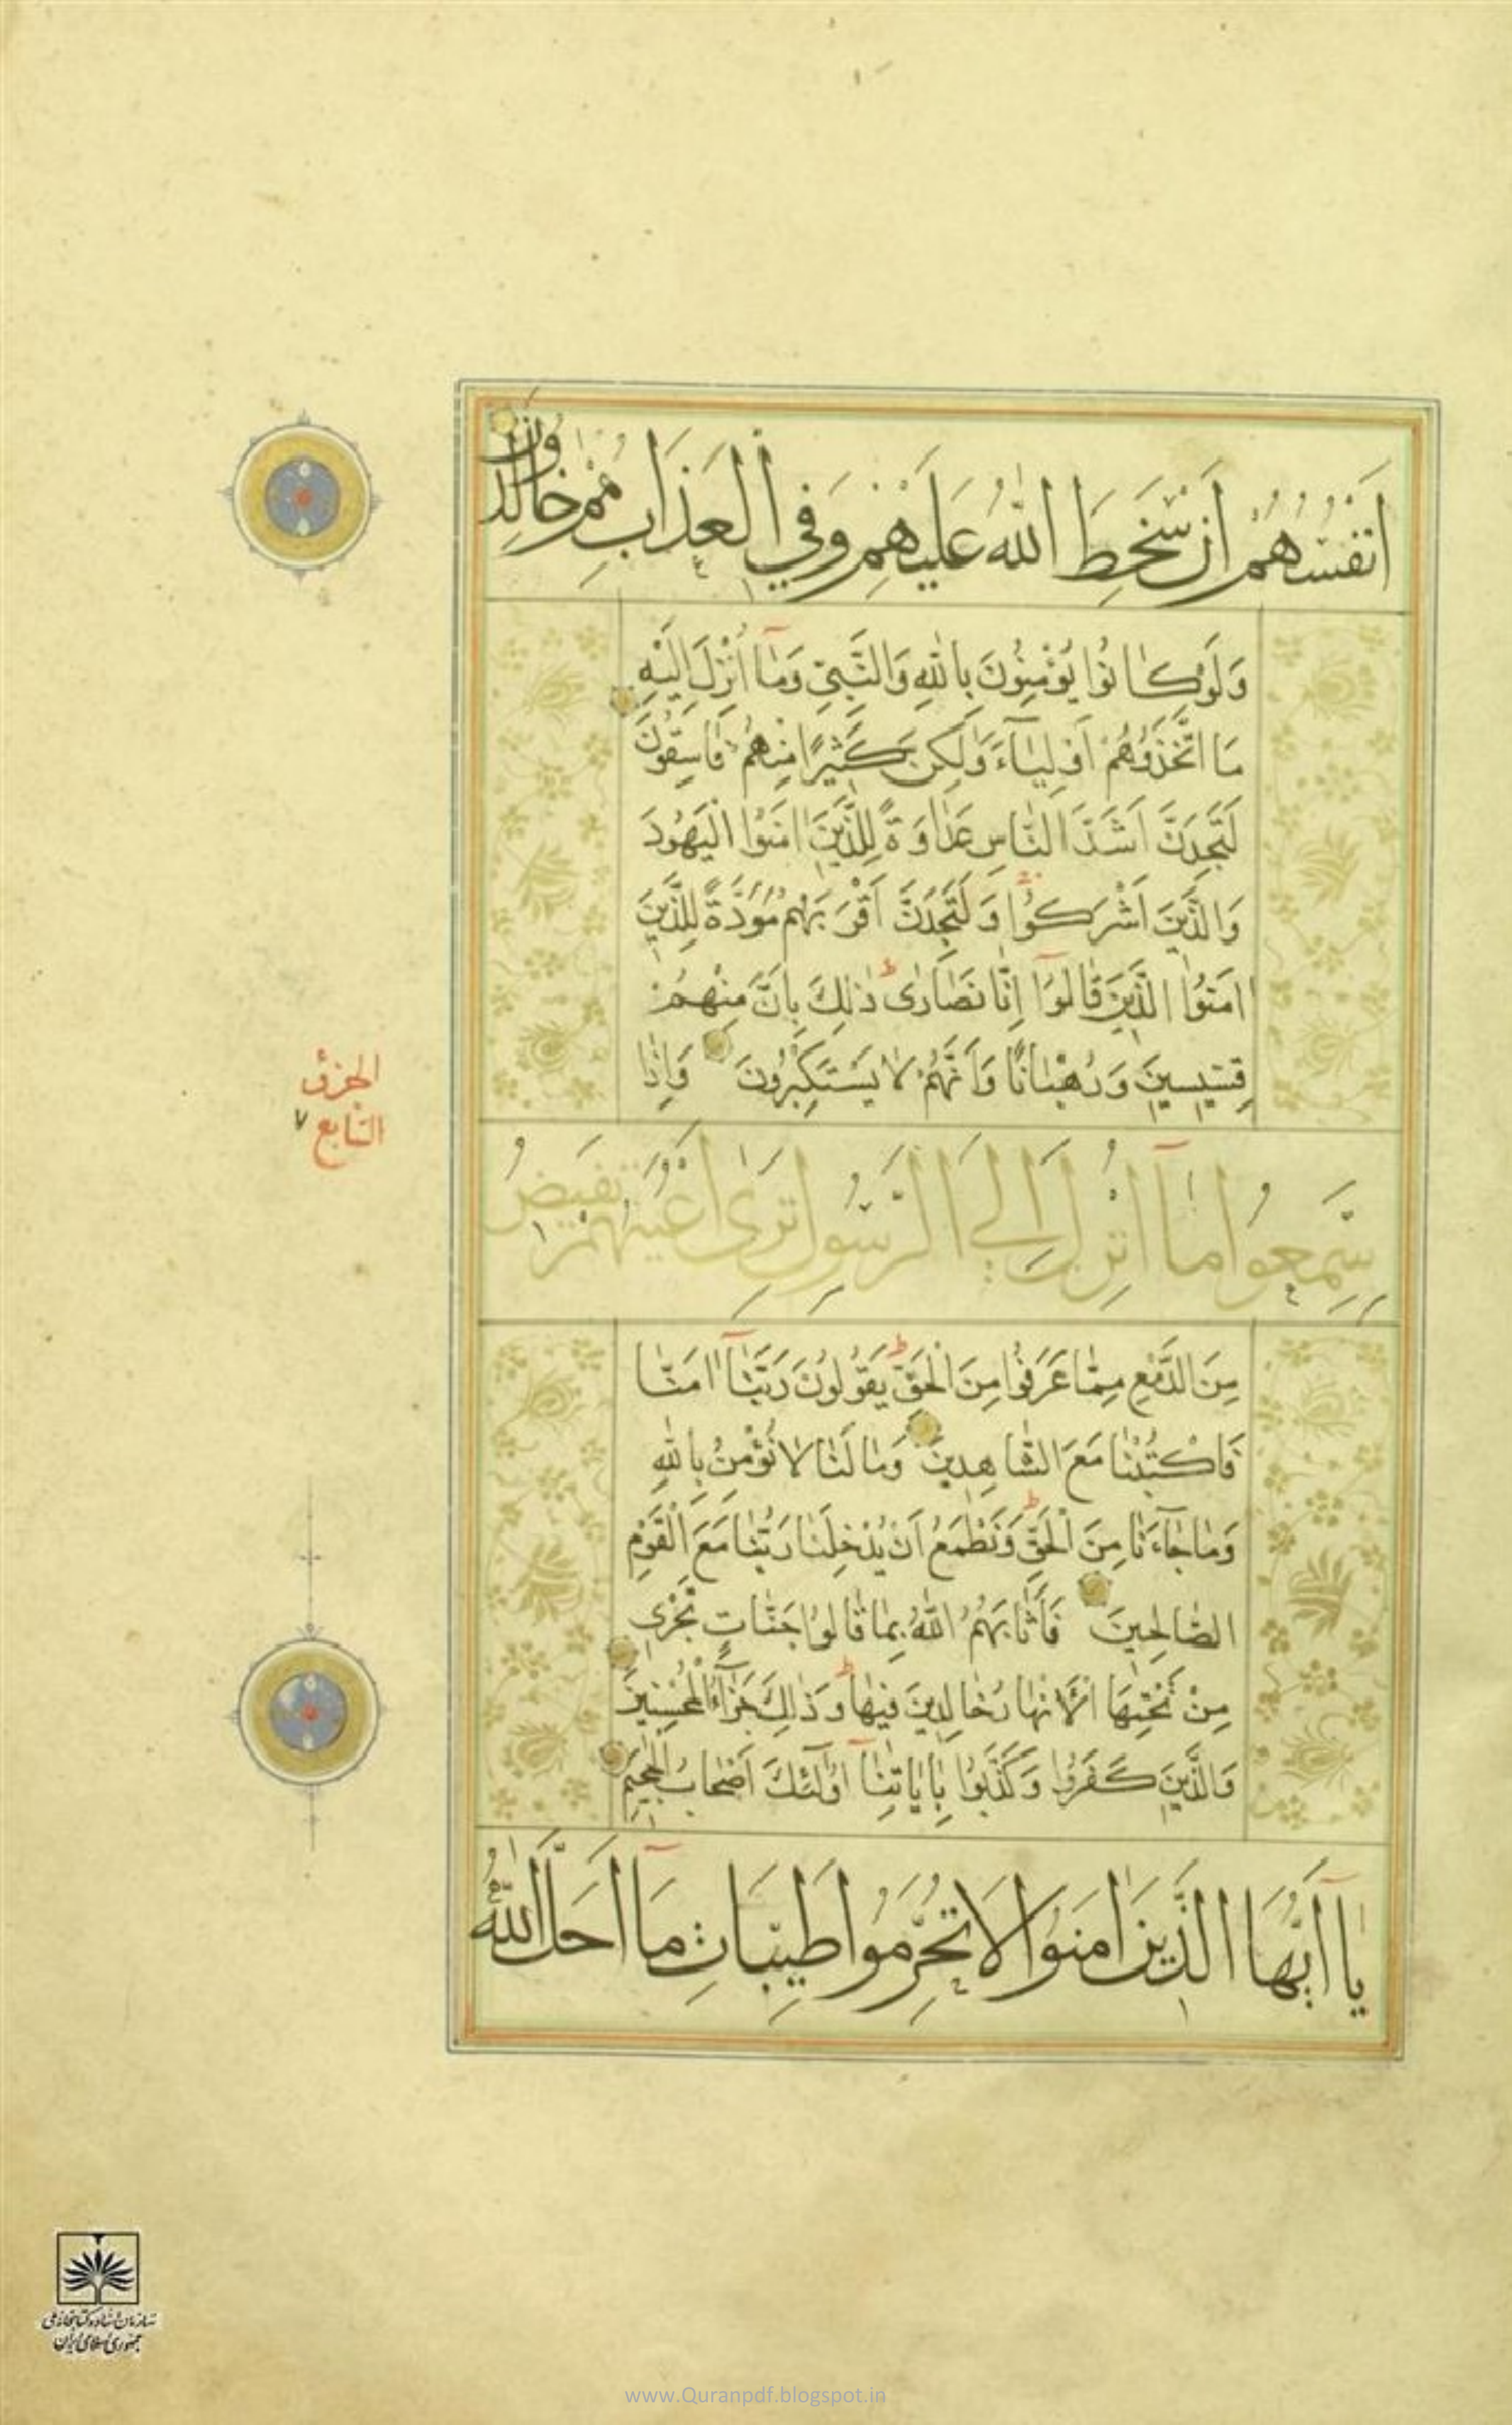 اَنْفُسُهُمْ اَنْ سَخِطَ اللّٰهُ عَلَيْهِمْ وَفِي الْعَذَابِ هُمْ خَالِدُونَ
وَلَوْ كَانُوا يُؤْمِنُونَ بِاللّٰهِ وَالنَّبِيِّ وَمَا اُنْزِلَ اِلَيْهِ
مَا اتَّخَذُوهُمْ اَوْلِيَاءَ وَلٰكِنَّ كَثِيرًا مِنْهُمْ فَاسِقُونَ
لَتَجِدَنَّ اَشَدَّ النَّاسِ عَدَاوَةً لِلَّذِينَ اٰمَنُوا الْيَهُودَ
وَالَّذِينَ اَشْرَكُوا وَلَتَجِدَنَّ اَقْرَبَهُمْ مَوَدَّةً لِلَّذِينَ
اٰمَنُوا الَّذِينَ قَالُوا اِنَّا نَصَارٰى ذٰلِكَ بِاَنَّ مِنْهُمْ
قِسِّيسِينَ وَرُهْبَانًا وَاَنَّهُمْ لَا يَسْتَكْبِرُونَ وَاِذَا
الجزؤ
السّابع ٧
سَمِعُوا مَا اُنْزِلَ اِلَى الرَّسُولِ تَرٰى اَعْيُنَهُمْ تَفِيضُ
مِنَ الدَّمْعِ مِمَّا عَرَفُوا مِنَ الْحَقِّ يَقُولُونَ رَبَّنَا اٰمَنَّا
فَاكْتُبْنَا مَعَ الشَّاهِدِينَ وَمَا لَنَا لَا نُؤْمِنُ بِاللّٰهِ
وَمَا جَاءَنَا مِنَ الْحَقِّ وَنَطْمَعُ اَنْ يُدْخِلَنَا رَبُّنَا مَعَ الْقَوْمِ
الصَّالِحِينَ فَاَثَابَهُمُ اللّٰهُ بِمَا قَالُوا جَنَّاتٍ تَجْرِي
مِنْ تَحْتِهَا الْاَنْهَارُ خَالِدِينَ فِيهَا وَذٰلِكَ جَزَاءُ الْمُحْسِنِينَ
وَالَّذِينَ كَفَرُوا وَكَذَّبُوا بِاٰيَاتِنَا اُولٰئِكَ اَصْحَابُ الْجَحِيمِ
يَا اَيُّهَا الَّذِينَ اٰمَنُوا لَا تُحَرِّمُوا طَيِّبَاتِ مَا اَحَلَّ اللّٰهُ
سازمان اسناد و کتابخانه ملی
جمهوری اسلامی ایران
www.Quranpdf.blogspot.in